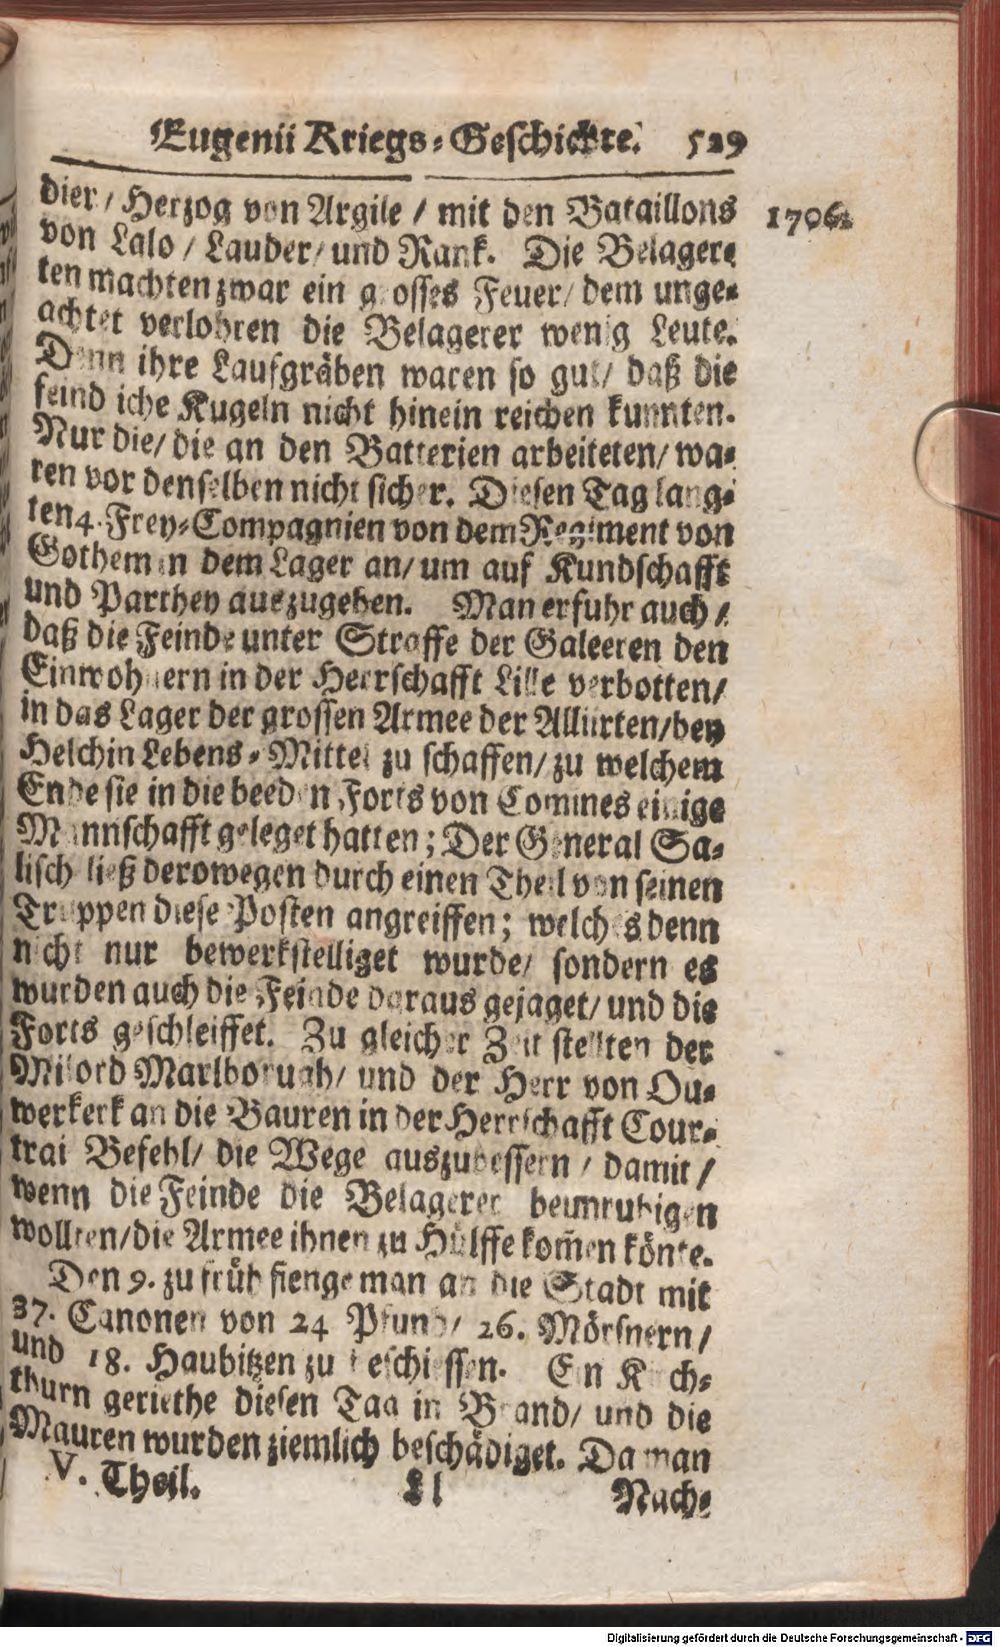 Eugenii Kriegs-Geschichte. 529
dier/ Herzog von Argile / mit den Bataillons 1706.
von Lalo / Lauder/ und Rank. Die Belager-
ten machten zwar ein grosses Feuer/ dem unge-
achtet verlohren die Belagerer wenig Leute.
Denn ihre Laufgräben waren so gut/ daß die
feindliche Kugeln nicht hinein reichen kunnten.
Nur die/ die an den Batterien arbeiteten/ wa-
ren vor denselben nicht sicher. Diesen Tag lang-
ten 4. Frey-Compagnien von dem Regiment von
Gothem in dem Lager an/ um auf Kundschafft
und Parthey auszugehen. Man erfuhr auch /
daß die Feinde unter Straffe der Galeeren den
Einwohnern in der Herrschafft Lille verbotten/
in das Lager der grossen Armee der Alliirten/ bey
Helchin Lebens-Mittel zu schaffen/ zu welchem
Ende sie in die beeden Forts von Commes einige
Mannschafft geleget hatten; Der General Sa-
lisch ließ derowegen durch einen Theil von seinen
Truppen diese Posten angreiffen; welches denn
nicht nur bewerkstelliget wurde/ sondern es
wurden auch die Feinde daraus gejaget/ und die
Forts geschleiffet. Zu gleicher Zeit stellten der
Milord Marlborugh/ und der Herr von Ou-
werkerk an die Bauren in der Herrschafft Cour-
trai Befehl/ die Wege auszubessern / damit /
wenn die Feinde die Belagerer beunruhigen
wollten/ die Armee ihnen zu Hülffe kom̃en könte.
Den 9. zu früh fienge man an die Stadt mit
37. Canonen von 24 Pfund/ 26. Mörsnern/
und 18. Haubitzen zu beschiessen. Ein Kirch-
thurn geriethe diesen Tag in Brand/ und die
Mauren wurden ziemlich beschädiget. Da man
V. Theil. Ll Nach-
Digitalisierung gefördert durch die Deutsche Forschungsgemeinschaft - DFG